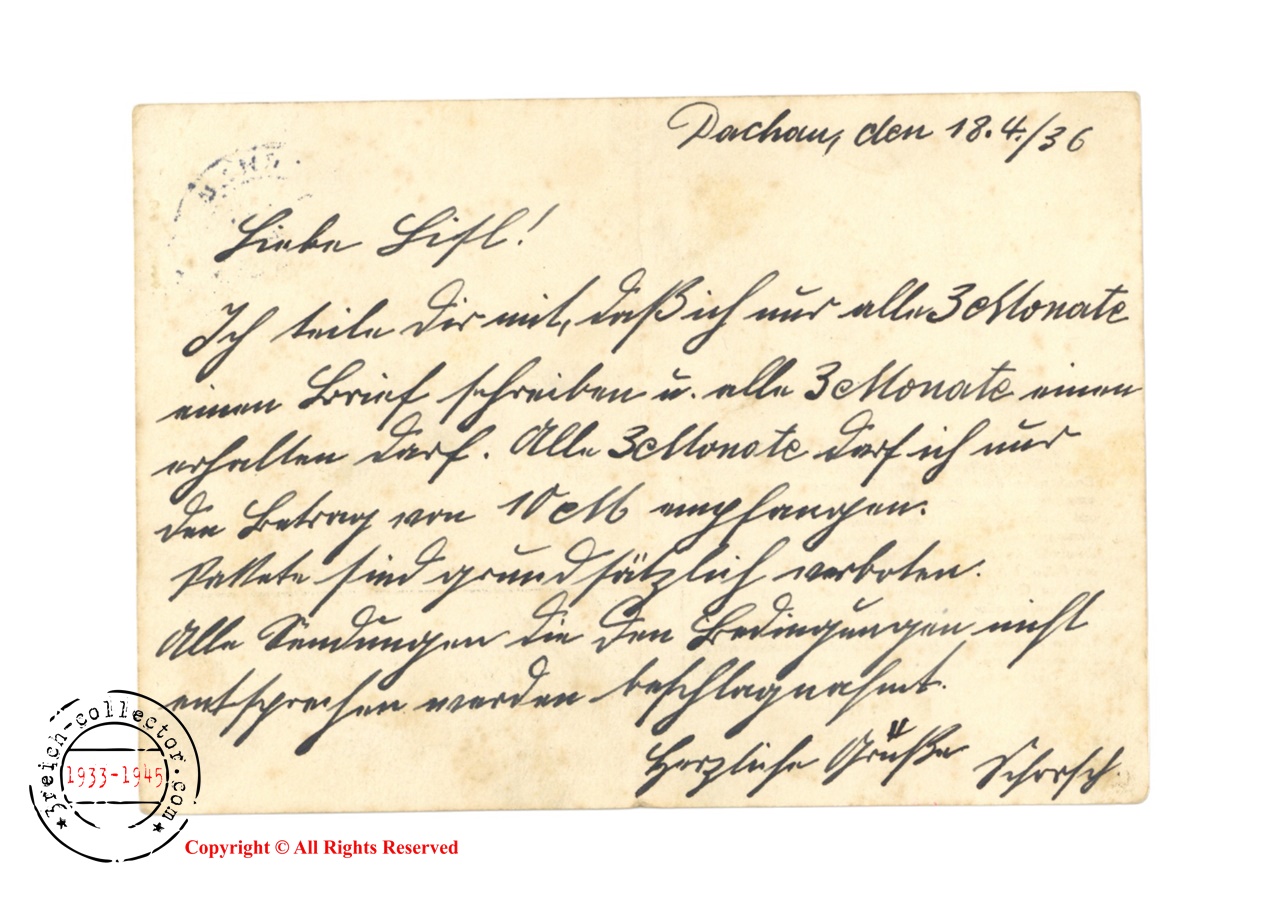 Dachau, den 18.4./36
Liebe Lisl!
Ich teile Dir mit, daß ich nur alle 3 Monate
einen Brief schreiben u. alle 3 Monate einen
erhalten darf. Alle 3 Monate darf ich nur
den Betrag von 10 M empfangen.
Pakete sind grundsätzlich verboten.
Alle Sendungen die den Bedingungen nicht
entsprechen werden beschlagnahmt.
Herzliche Grüße Schorsch.
3reich-collector.com
1933-1945
Copyright © All Rights Reserved